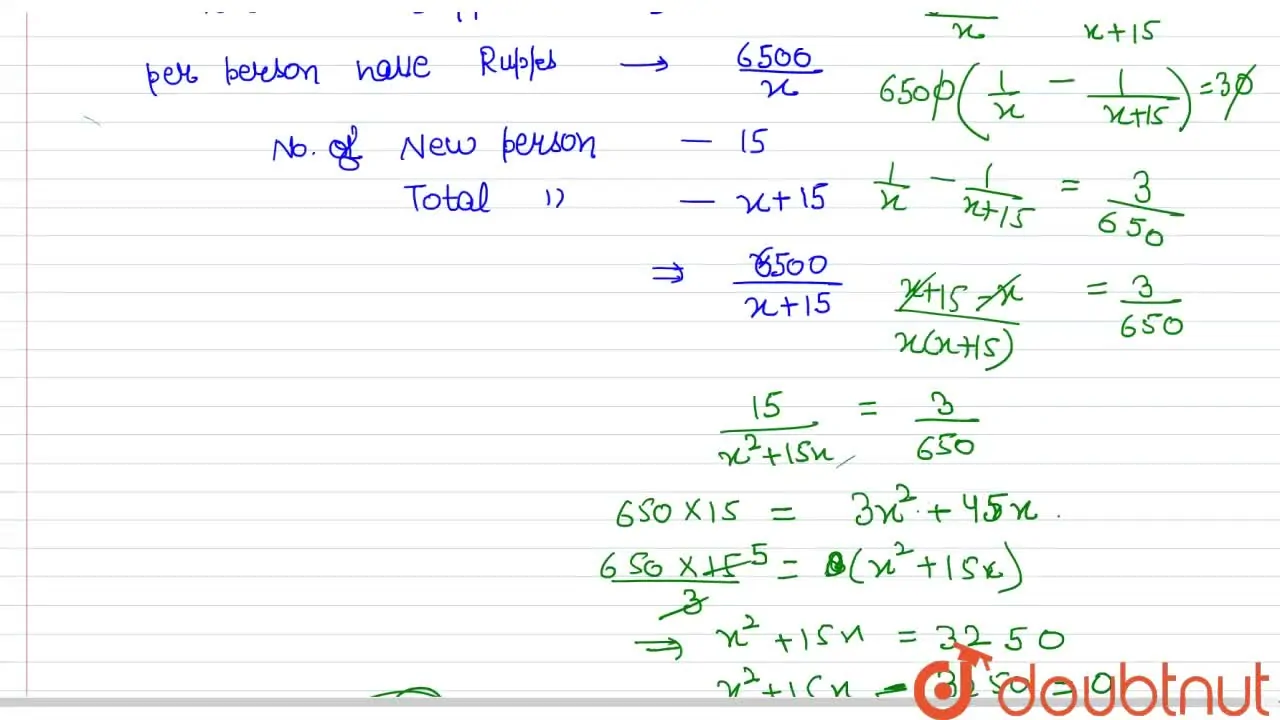 per person have Rupples → 6500/x
No. of New person - 15
Total " - x+15
⇒ 6500/(x+15)
x x+15
6500(1/x - 1/(x+15)) = 30
1/x - 1/(x+15) = 3/650
(x+15-x)/(x(x+15)) = 3/650
15/(x²+15x) = 3/650
650×15 = 3x²+45x
(650×15)/3 5 = (x²+15x)
⇒ x²+15x = 3250
x²+15x - 3250 = 0
doubtnut